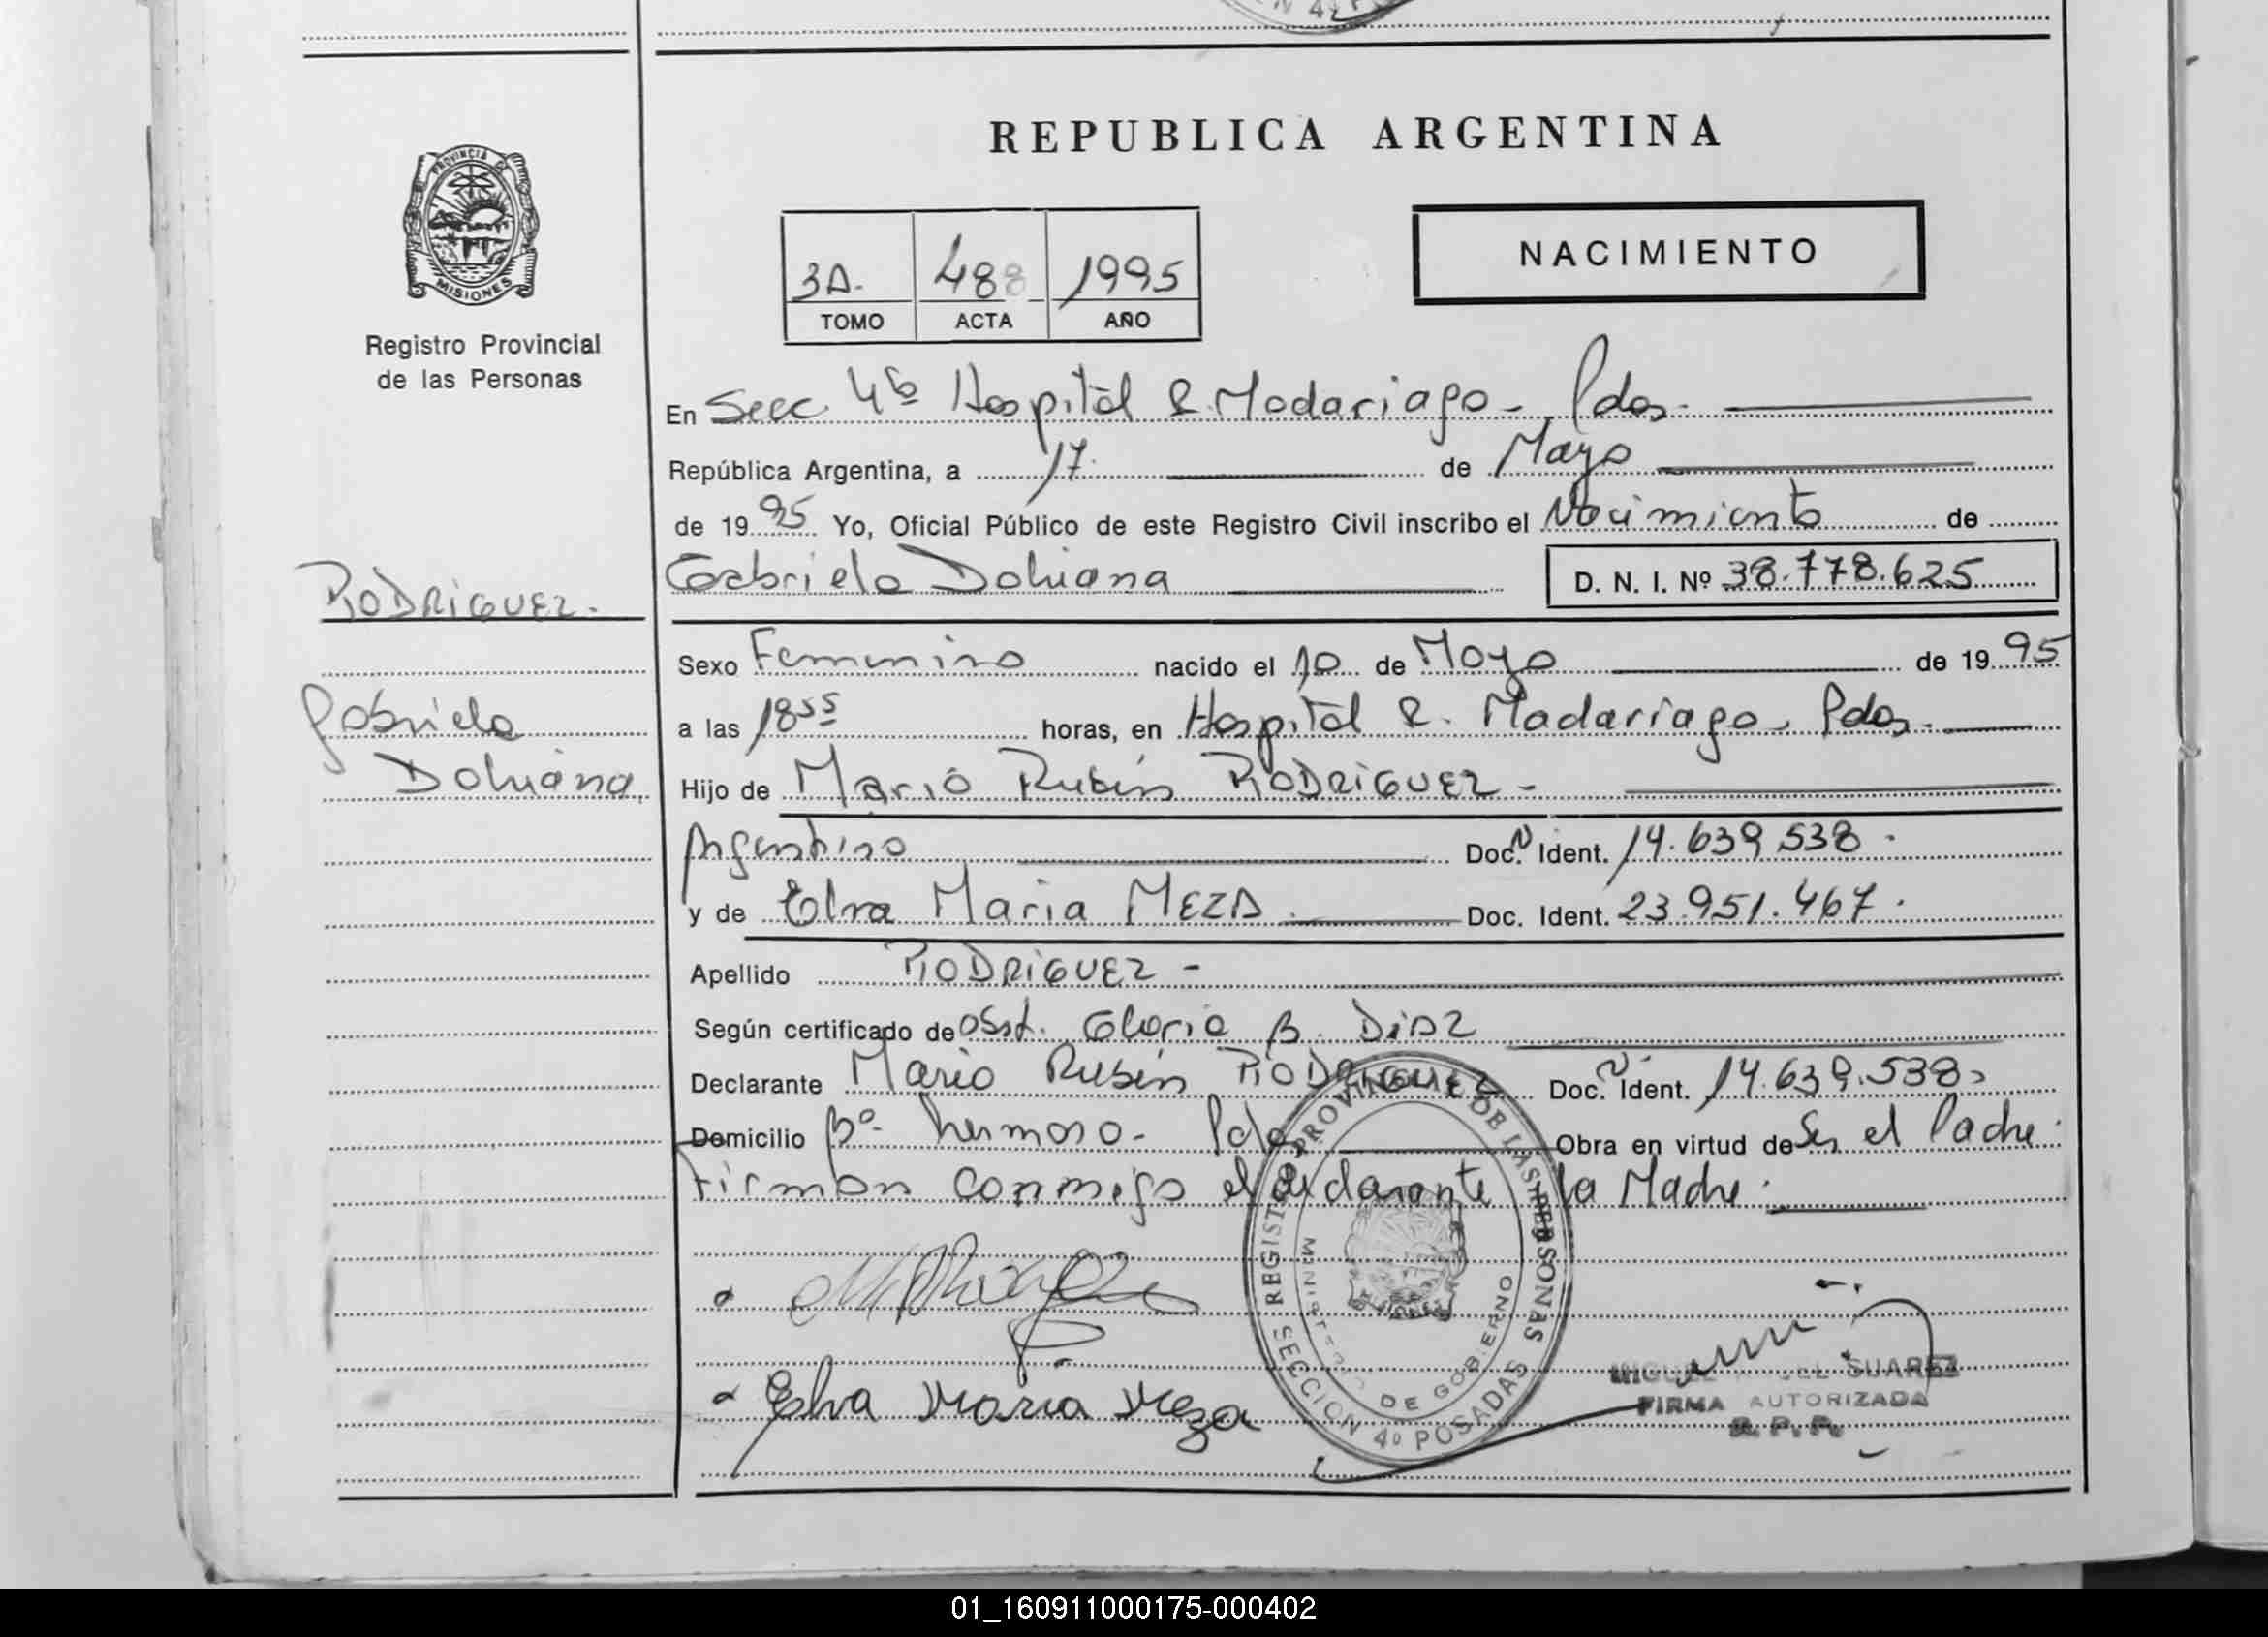 REPUBLICA ARGENTINA
PROVINCIA DE
MISIONES
Registro Provincial
de las Personas
NACIMIENTO
3A. 488 1995
TOMO ACTA AÑO
En Secc. 4ta Hospital R. Madariaga - Pdas.
República Argentina, a 17 de Mayo
de 1995 Yo, Oficial Público de este Registro Civil inscribo el Nacimiento de
Gabriela Doluana D. N. I. Nº 38.778.625
RODRIGUEZ.
Sexo Femenino nacido el 10 de Mayo de 1995
Gabriela
Doluana
a las 18 55 horas, en Hospital R. Madariaga - Pdas.
Hijo de Mario Rubén RODRIGUEZ -
Argentino Doc. N Ident. 14.639.538.
y de Elva Maria MEZA Doc. Ident. 23.951.467.
Apellido RODRIGUEZ -
Según certificado de Obst. Gloria B. DiAZ
Declarante Mario Rubén RODRIGUEZ Doc. N Ident. 14.639.538
Domicilio Bº hermoso - Pdas Obra en virtud de Ser el Padre.
Firman conmigo el declarante y la Madre.
REGISTRO PROVINCIAL DE LAS PERSONAS
MINISTERIO DE GOBIERNO
SECCION 4º POSADAS
Elva Maria Meza
SUAREZ
FIRMA AUTORIZADA
R. P. P.
01_160911000175-000402